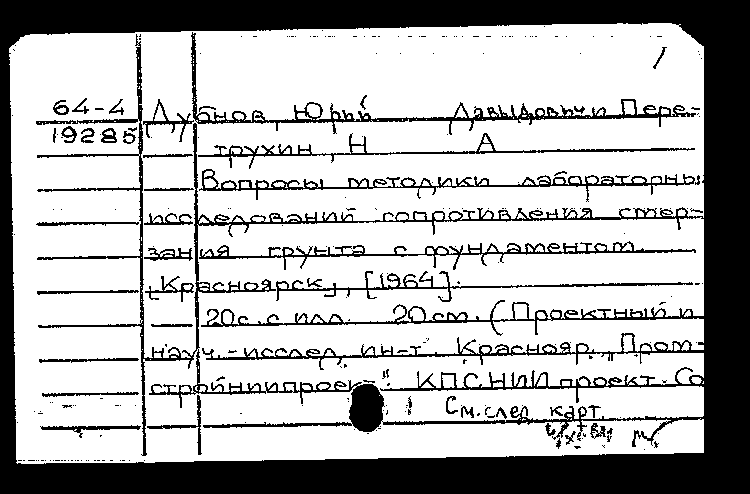 1
64-4 Дубнов, Юрий Давыдович и Пере-
19285 трухин, Н А
Вопросы методики лабораторны
исследований сопротивления смер-
зания грунта с фундаментом.
[Красноярск], [1964].
20с. с илл. 20см. (Проектный и
науч.-исслед. ин-т. Краснояр. „Пром-
стройниипроект". КПСНИИпроект. Со
См. след. карт.